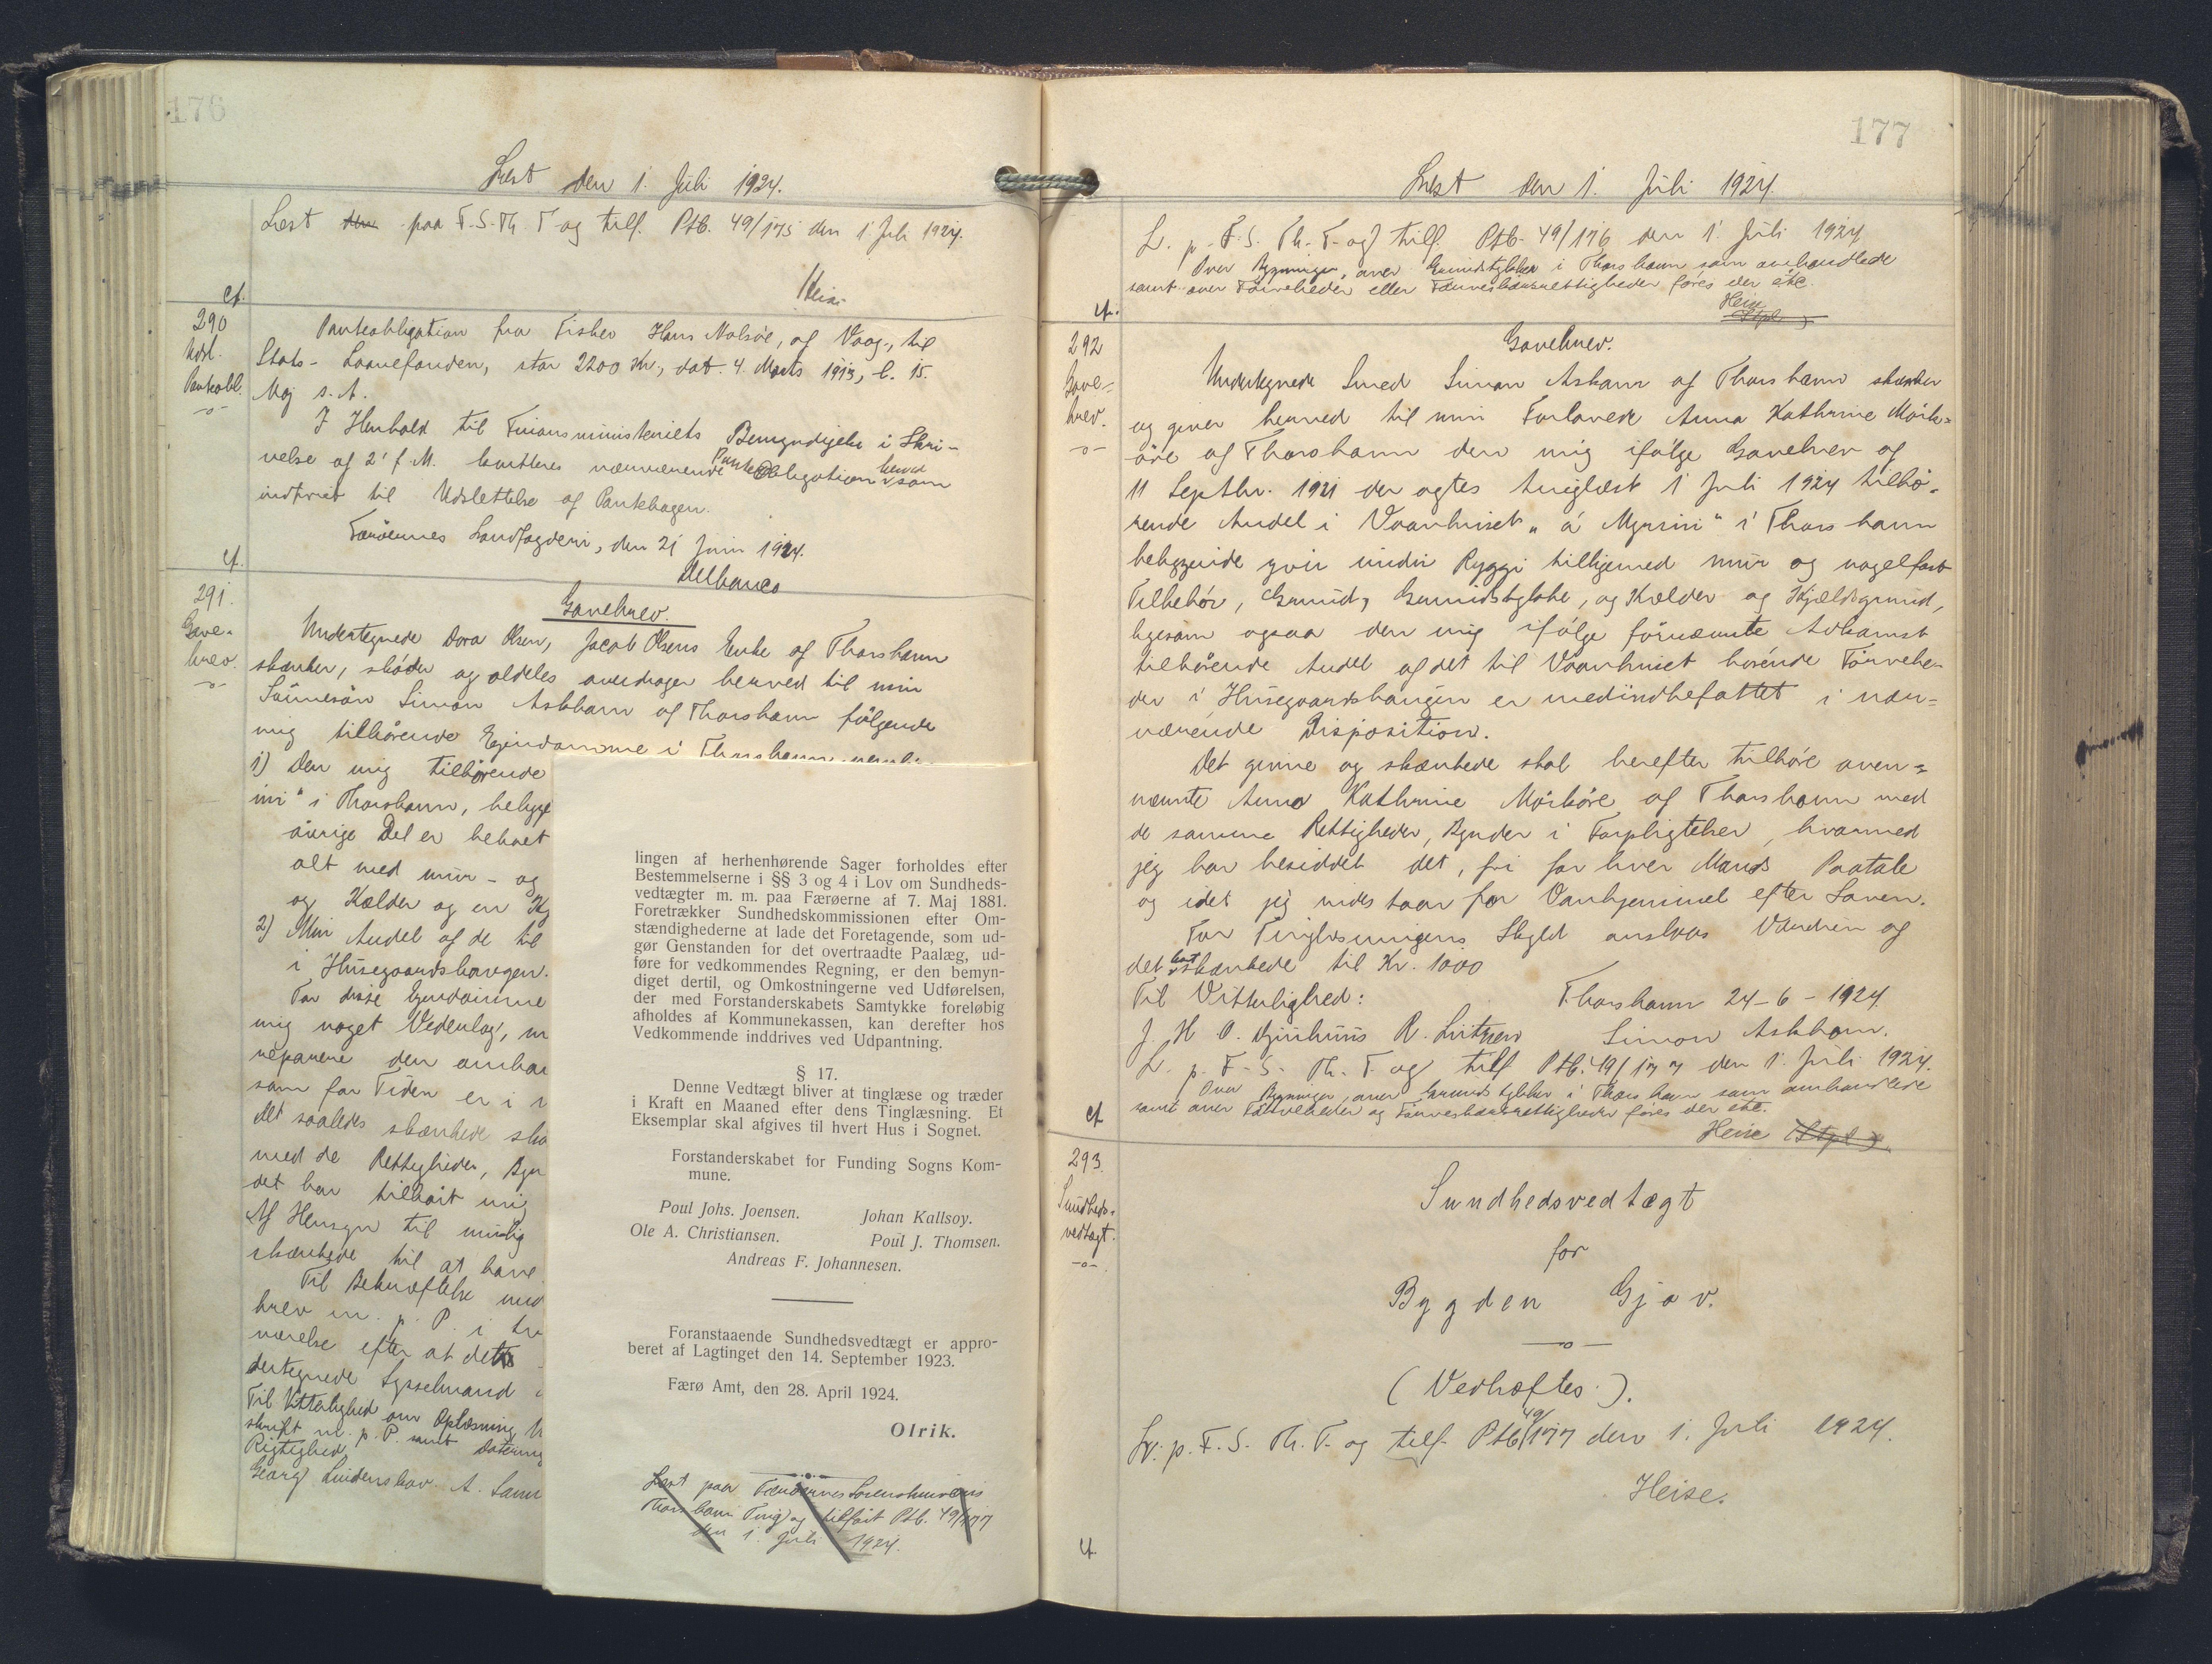 176
Læst den 1. Juli 1924.
Læst den paa F.S. Th T og tilf. Ptb. 49/175 den 1' Juli 1924.
Heise
cf.
290
Udsl.
Panteobl.
Panteobligation fra Fisker Hans Nolsöe, af Vaag, til
Stats-Laanefonden, stor 2200 Kr., dat. 4. Marts 1913, l. 15.
Maj s. A.
I Henhold til Finansministeriets Bemyndigelse i Skri-
velse af 2' f. M. kvitteres nærværende Panteobligation herved som
indfriet til Udslettelse af Pantebogen.
Færöernes Landfogderi, den 21 Juni 1924.
cf.
291.
Gave-
brev.
Gavebrev.
Undertegnede Dora Olsen, Jacob Olsens Enke af Thorshavn
skænker, sköder og aldeles overdrager herved til min
Sönnesön Simon Askham af Thorshavn fölgende
mig tilhörende Ejendomme i Thorshavn, nemlig
1) Den mig tilhörende
ini" i Thorshavn, bebygg
övrige Del er beboet
alt med mur- og
og Kælder og en Kj
2) Min Andel af de til
i Husegaardshaugen.
For disse Ejendomme
mig noget Vederlag, m
reparere den omhan
som for Tiden er i
det saaledes skænkede ska
med de Rettigheder, Byr
det har tilhört mig
Af Hensyn til mulig
skænkede til at have
Til Bekræftelse med
brev m. p. P. i
værelse efter at dette
dertegnede Sysselmand
Til Vitterlighed om Oplæsning
skrift m. p. P. samt Datering
Rigtighed
Georg Lindenskov. A. Sam
lingen af herhenhørende Sager forholdes efter
Bestemmelserne i §§ 3 og 4 i Lov om Sundheds-
vedtægter m. m. paa Færøerne af 7. Maj 1881.
Foretrækker Sundhedskommissionen efter Om-
stændighederne at lade det Foretagende, som ud-
gør Genstanden for det overtraadte Paalæg, ud-
føre for vedkommendes Regning, er den bemyn-
diget dertil, og Omkostningerne ved Udførelsen,
der med Forstanderskabets Samtykke foreløbig
afholdes af Kommunekassen, kan derefter hos
Vedkommende inddrives ved Udpantning.
§ 17.
Denne Vedtægt bliver at tinglæse og træder
i Kraft en Maaned efter dens Tinglæsning. Et
Eksemplar skal afgives til hvert Hus i Sognet.
Forstanderskabet for Funding Sogns Kom-
mune.
Poul Johs. Joensen. Johan Kallsoy.
Ole A. Christiansen. Poul J. Thomsen.
Andreas F. Johannesen.
Foranstaaende Sundhedsvedtægt er appro-
beret af Lagtinget den 14. September 1923.
Færø Amt, den 28. April 1924.
Olrik.
Læst paa Færöernes Sorenskriveris
Thorshavn Ting og tilfört Ptb. 49/177
den 1. Juli 1924.
177
Læst den 1. Juli 1924.
L. p. F.S. Th. T. og tilf. Ptb. 49/176 den 1' Juli 1924
Over Bygninger, over Grundstykker i Thorshavn som omhandlede
samt over Törveheder eller Törveskærsrettigheder föres der ikke.
Heise
(Stpl.)
cf.
292
Gave-
brev.
Gavebrev.
Undertegnede Smed Simon Askham af Thorshavn skænker
og giver herved til min Forlovede Anna Kathrine Mörk-
öre af Thorshavn den mig ifölge Gavebrev af
11 Septbr. 1921 der agtes tinglæst 1 Juli 1924 tilhö-
rende Andel i Vaanhuset "á Mýrini" i Thorshavn
bebyggende yvir undir Ryggi tilligemed mur og nagelfast
Tilbehör, Grund, Grundstykke, og Kælder og Kjældsgrund,
ligesom ogsaa den mig ifölge förnævnte Adkomst
tilhörende Andel af det til Vaanhuset hörende Törvehe-
der i Husegaardshaugen er medindbefattet i nær-
værende Disposition.
Det givne og skænkede skal herefter tilhöre oven-
nævnte Anna Kathrine Mörköre af Thorshavn med
de samme Rettigheder, Byrder i Forpligtelser, hvormed
jeg har besiddet det, fri for hver Mands Paatale
og idet jeg indestaar for Vanhjemmel efter Loven.
For Tinglæsningens Skyld ansættes Værdien og
det bortskænkede til Kr. 1000
Til Vitterlighed: Thorshavn 24-6-1924
J. H. O. Djurhuus R. Lützen Simon Askham.
L. p. F.S. Th. T. og tilf. Ptb. 49/177 den 1. Juli 1924.
Over Bygninger, over Grundstykker i Thorshavn som omhandlede
samt over Törveheder og Törveskærsrettigheder föres der ikke.
Heise (Stpl.)
cf
293.
Sundheds-
vedtægt.
Sundhedsvedtægt
for
Bygden Gjov.
(Vedhæftes).
L. p. F.S. Th. T. og tilf. Ptb 49/177 den 1. Juli 1924.
Heise.
cf.